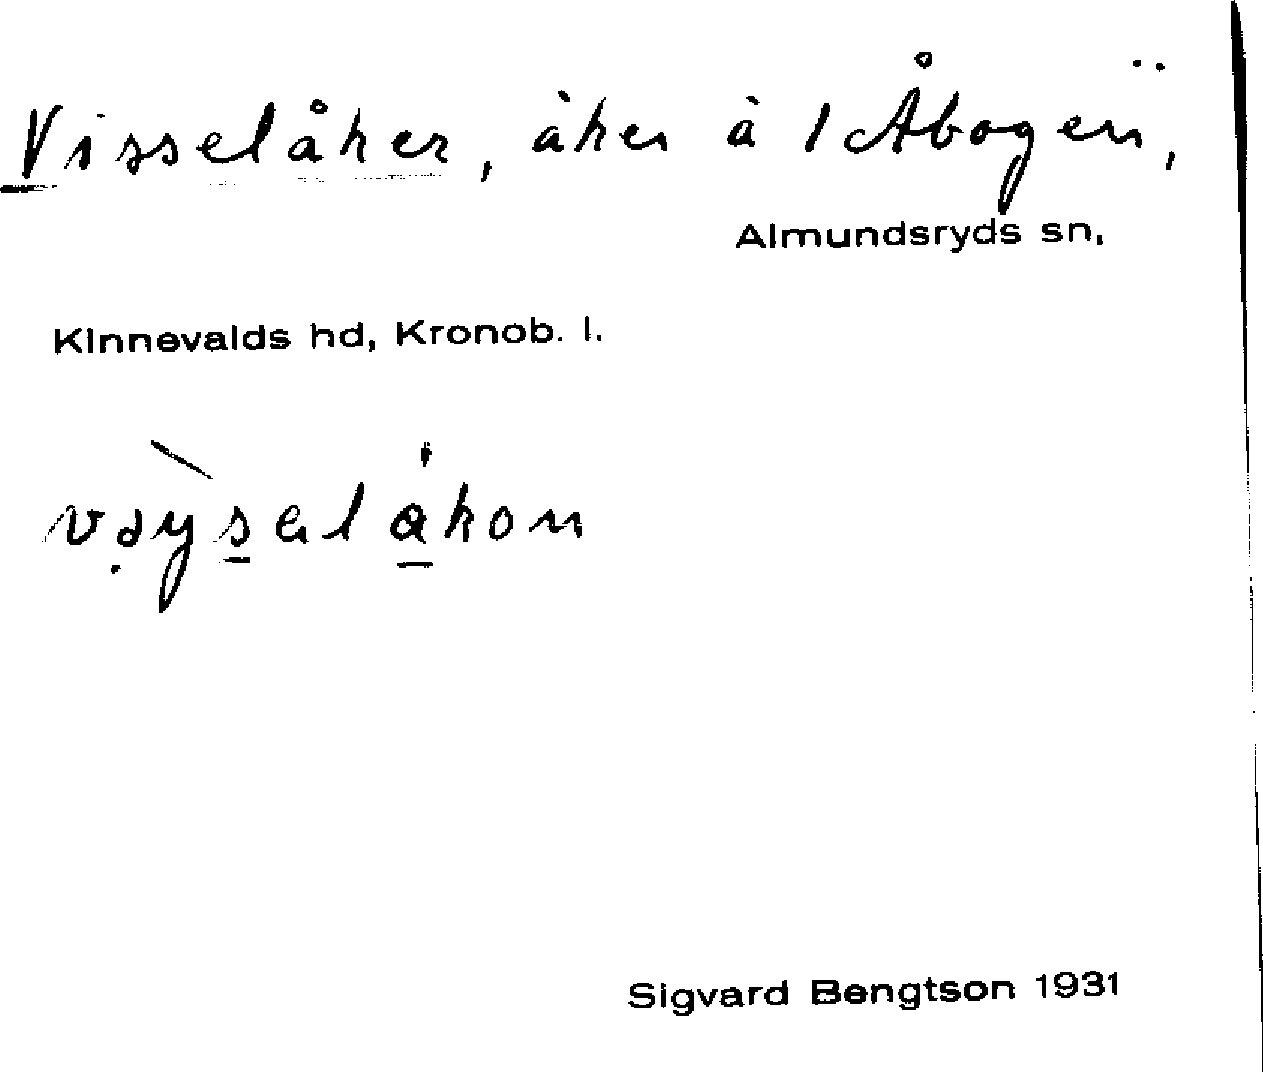 Visselåker, åker å 1 Åbogen,
Almundsryds sn,
Kinnevalds hd, Kronob. l.
Sigvard Bengtson 1931